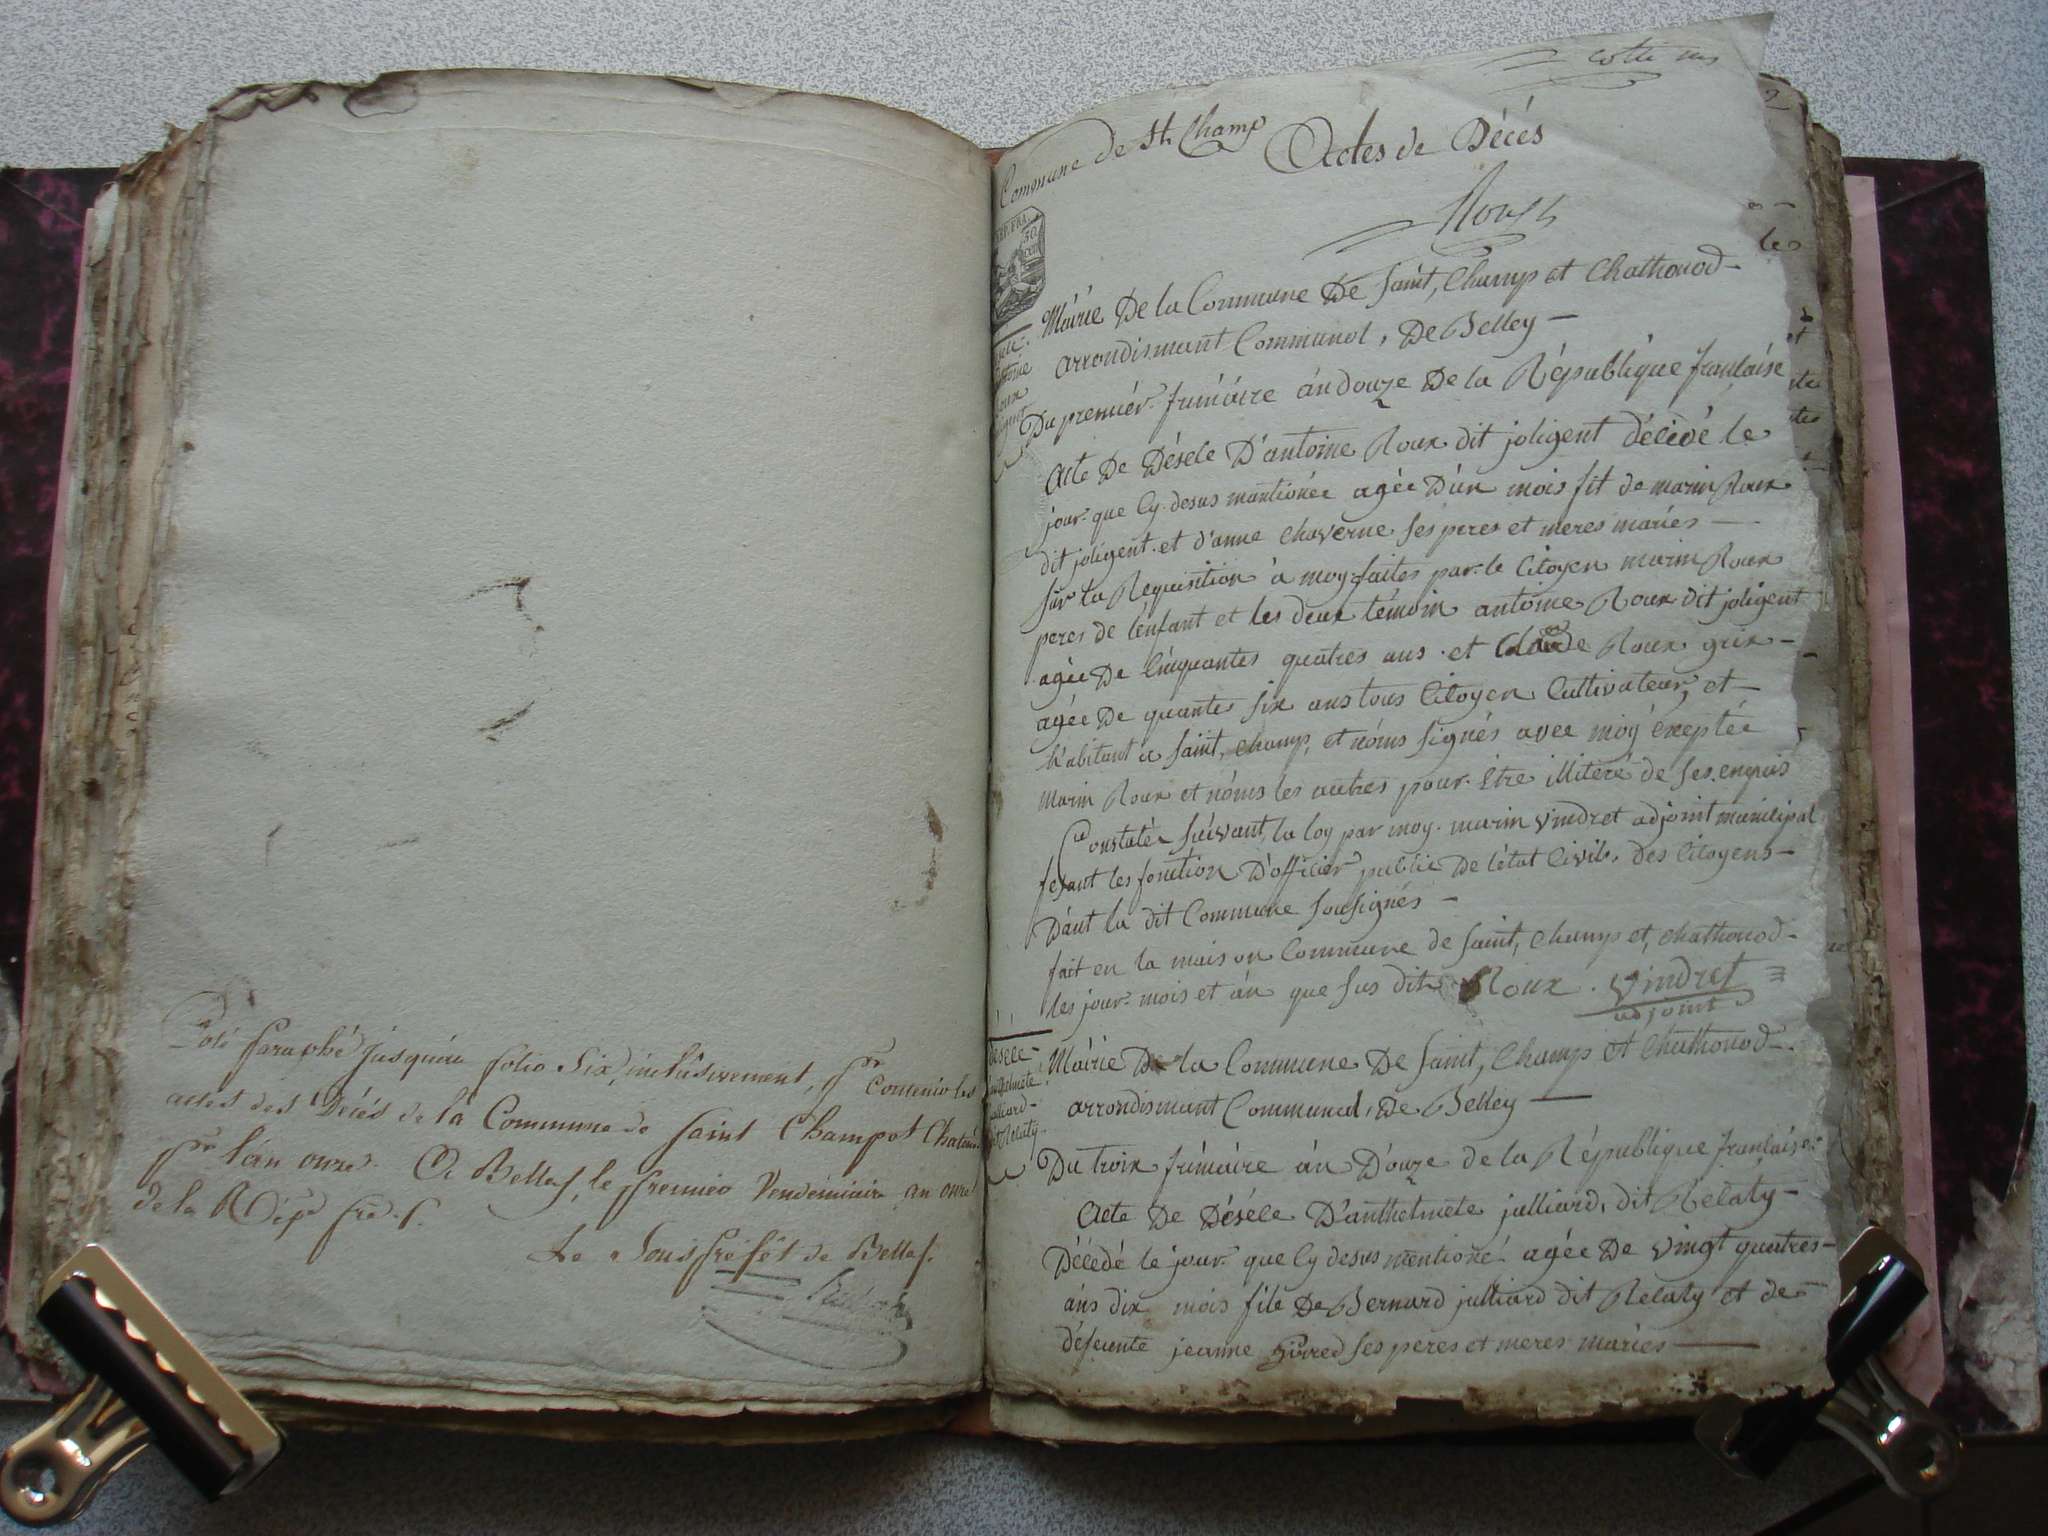 Coté Paraphé jusqu'au folio Six, inclusivement, pr contenir les
actes des Décés de la Commune de Saint Champ et
pr l'an onze. A Belley, le premier Vendémiaire an onze
de la Rép. fr.
Le Sous préfêt de Belley.
Commune de St. Champ
Actes de Décés
REP. FRA.
50
Mairie De la Commune De Saint, Champ et Chathonod
arrondismant Communal, De Belley
Du premiér frimaire an douze De la République franlaise
Acte De Désele D'antoine Roux dit joligent décédé le
jour que Cy. desus mantionée agée D'un mois fit de marin Roux
dit joligent et d'anne Chaverne ses peres et meres mariés
sur la Requisition a moy faites par le Citoyen marin Roux
peres de lenfant et les deux témoin antoine Roux dit joligent
agée De Cinquantes quatres ans et Claude Roux grix
agée De quante six ans tous Citoyen Cultivateur, et
habitant a Saint, Champ, et nóms signés avec moy éxeptée
marin Roux et nóms les autres pour être illiteré de ses enquis
Constatée suivant la loy par moy marin vindret adjoint municipal
fesant les fonction D'officier public De létat Civil des Citoyens
Dant la dit Commune sousignés
fait en la maison Commune de Saint, Champ et, Chathonod
les jour mois et án que sus dit Roux. Vindret
adjoint
Mairie De la Commune De Saint, Champ et Chathonod
arrondismant Communal, De Belley
Du troix frimaire án Douze de la République franlaise
Acte De Désele D'anthelmete julliard, dit Relaty
Décedé le jour que Cy desus mentioné agée De vingt quatres
ans dix mois file De Bernard julliard dit Relaty et de
défunte jeanne ses peres et meres mariés